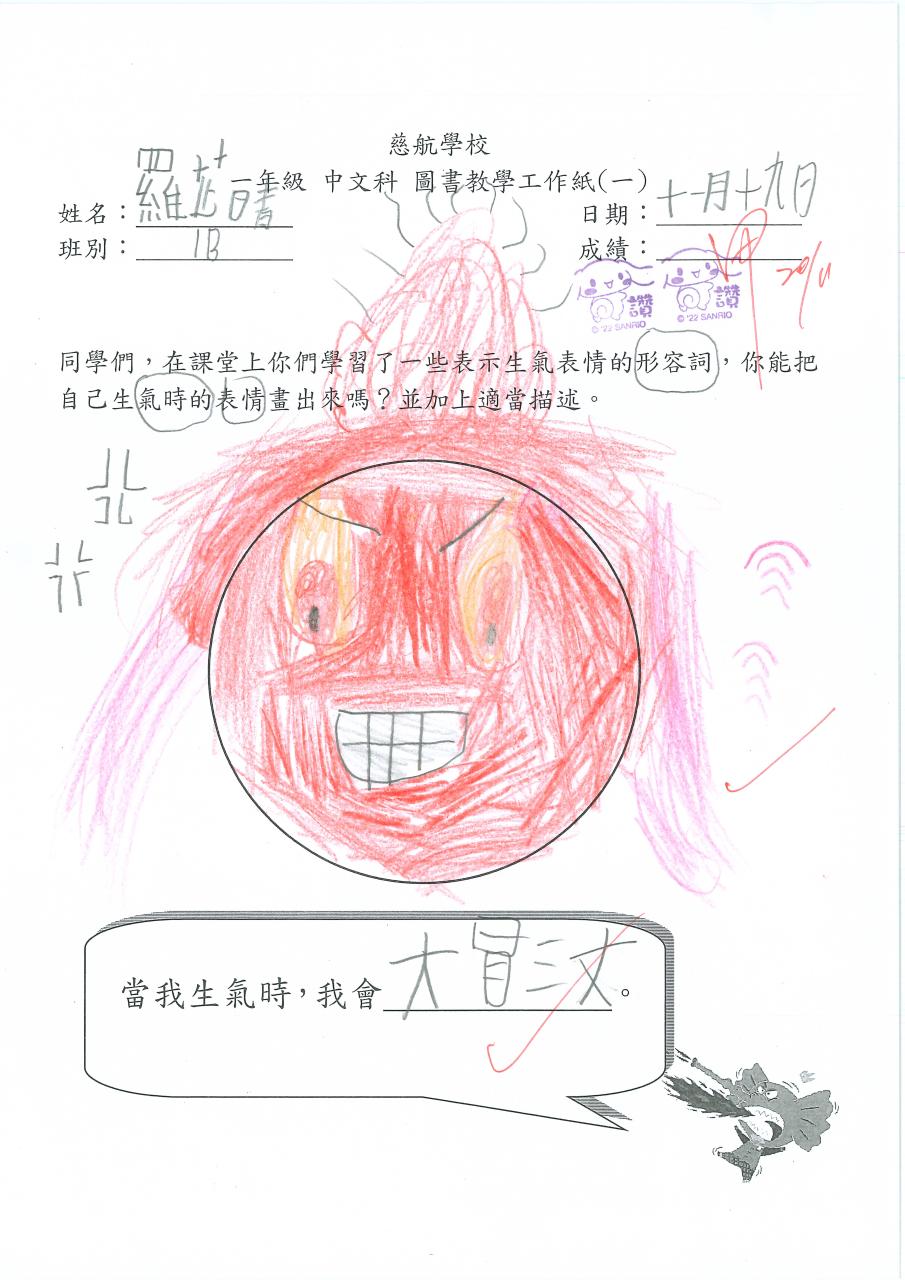 慈航學校
一年級 中文科 圖書教學工作紙(一)
姓名：羅芷晴 日期：十一月十九日
班別：1B 成績：
讚 讚
© '22 SANRIO © '22 SANRIO
20/11
同學們，在課堂上你們學習了一些表示生氣表情的形容詞，你能把
自己生氣時的表情畫出來嗎？並加上適當描述。
當我生氣時，我會大冒三丈。